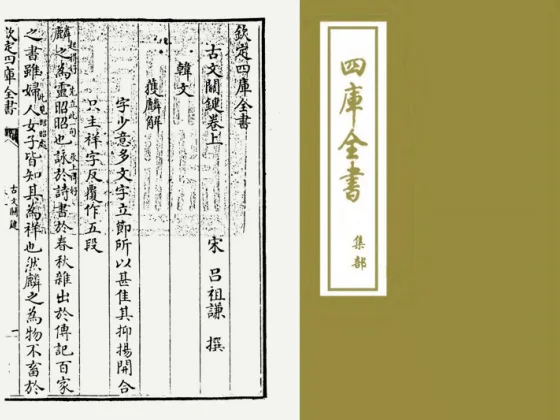 欽定四庫全書
古文關鍵卷上
宋 呂祖謙 撰
韓文
獲麟解
字少意多文字立節所以甚佳其抑揚開合
只主祥字反覆作五段
麟之為靈昭昭也詠於詩書於春秋雜出於傳記百家
起得好 先立此一句
之書雖婦人女子皆知其為祥也然麟之為物不畜於
欽定四庫全書
古文關鍵
四庫全書
集部